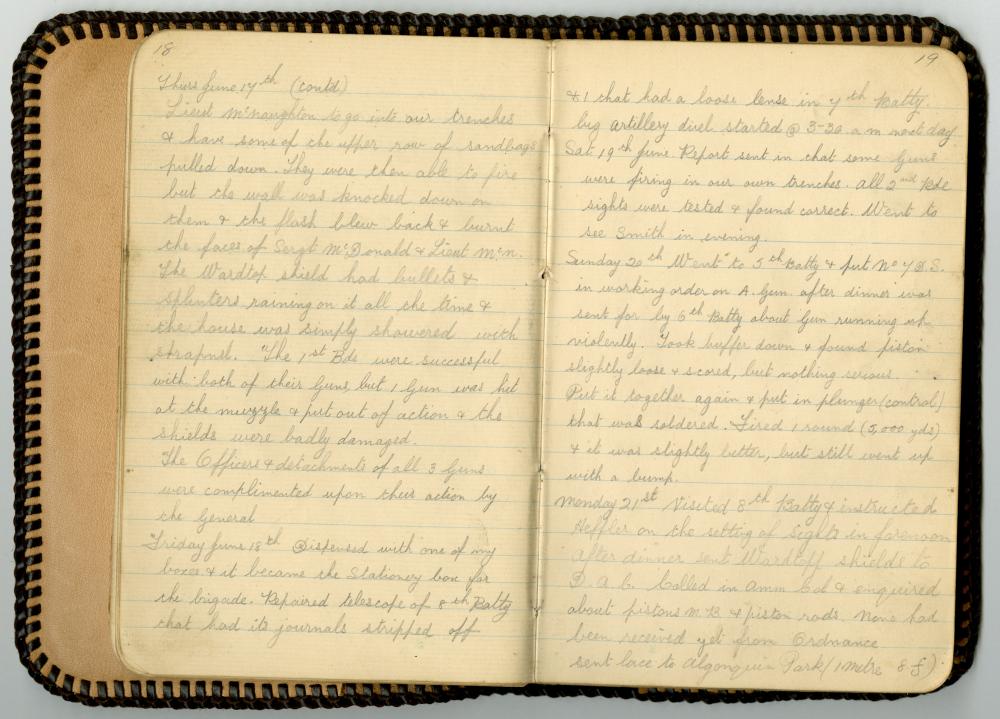 18
Thurs June 17th (contd)
Lieut McNaughton to go into our trenches
& have some of the upper row of sandbags
pulled down. They were then able to fire
but the wall was knocked down on
them & the flash blew back & burnt
the faces of Sergt McDonald & Lieut McN.
The Wardtop shield had bullets &
splinters raining on it all the time &
the house was simply showered with
shrapnel. The 1st Bde were successful
with both of their Guns, but 1 Gun was hit
at the muzzle & put out of action & the
shields were badly damaged.
The Officers & detachments of all 3 Guns
were complimented upon their action by
the General
Friday June 18th Dispensed with one of my
boxes & it became the Stationery box for
the brigade. Repaired telescope of 8th Batty
that had its journals stripped off
19
& 1 that had a loose lense in 7th Batty.
big artillery duel started @ 3-30 a m next day
Sat 19th June Report sent in that some Guns
were firing in our own trenches. All 2nd Bde
sights were tested & found correct. Went to
see Smith in evening.
Sunday 20th Went to 5th Batty & put No 7 D.S.
in working order on A. Gun. after dinner was
sent for by 6th Batty about Gun running up
violently. Took buffer down & found piston
slightly loose & scored, but nothing serious.
Put it together again & put in plunger (control)
that was soldered. Fired 1 round (5,000 yds)
& it was slightly better, but still went up
with a bump.
Monday 21st Visited 8th Batty & instructed
Heffler on the setting of Sights in forenoon
after dinner sent Wardtoff shields to
D.A.C. Called in Amm Col & enquired
about pistons M.B & piston rods. None had
been received yet from Ordnance
sent lace to Algonquin Park (1 metre 8 f)